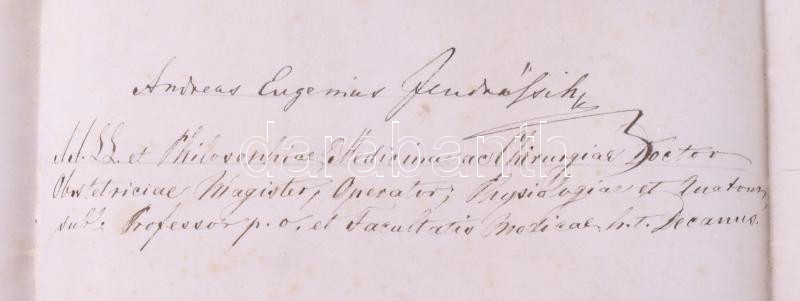 Andreas Eugenius Jendrássik
AA. LL. et Philosophiae, Medicinae ac Chirurgiae Doctor
Obstetriciae Magister, Operator; Physiologiae et Anatom.
subl. Professor p. o. et Facultatis Medicae h. t. Decanus.
darabanth